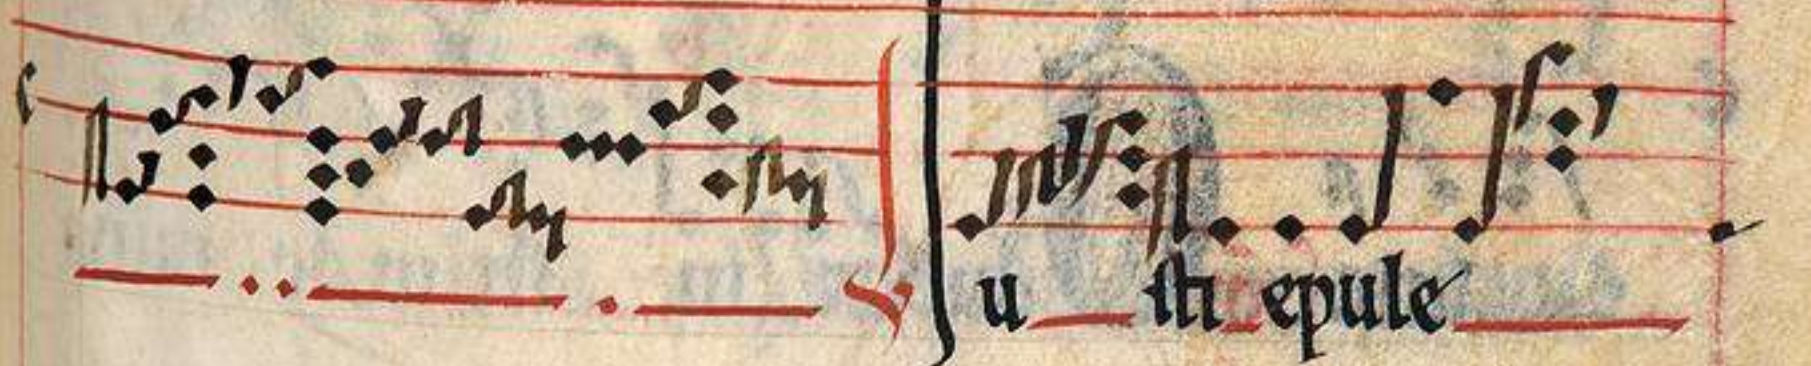 ℣ Iusti epule